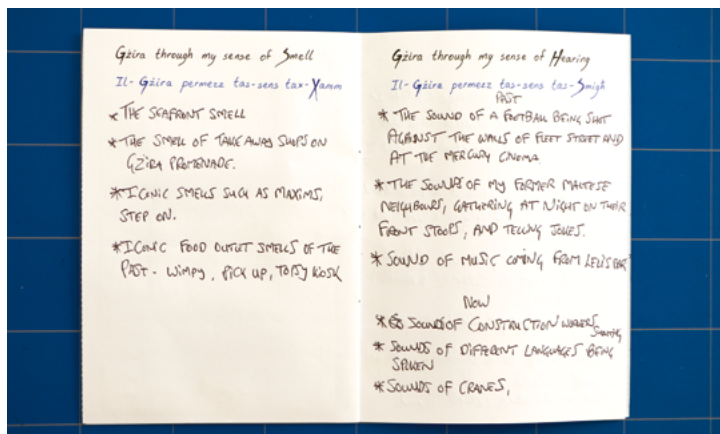 Gżira through my sense of Smell
Il-Gżira permezz tas-sens tax-Xamm
* THE SEAFRONT SMELL
* THE SMELL OF TAKE AWAY SHOPS ON
GŻIRA PROMENADE.
* ICONIC SMELLS SUCH AS MAXIMS,
STEP ON.
* ICONIC FOOD OUTLET SMELLS OF THE
PAST - WIMPY, PICK UP, TOPSY KIOSK
Gżira through my sense of Hearing
Il-Gżira permezz tas-sens tas-Smigħ
PAST
* THE SOUND OF A FOOTBALL BEING SHOT
AGAINST THE WALLS OF FLEET STREET AND
AT THE MERCURY CINEMA
* THE SOUNDS OF MY FORMER MALTESE
NEIGHBOURS, GATHERING AT NIGHT ON THEIR
FRONT STOOPS, AND TELLING JOKES.
* SOUND OF MUSIC COMING FROM
NOW
* SOUNDS OF CONSTRUCTION WORKERS
SHOUTING
* SOUNDS OF DIFFERENT LANGUAGES BEING
SPOKEN
* SOUNDS OF CRANES,